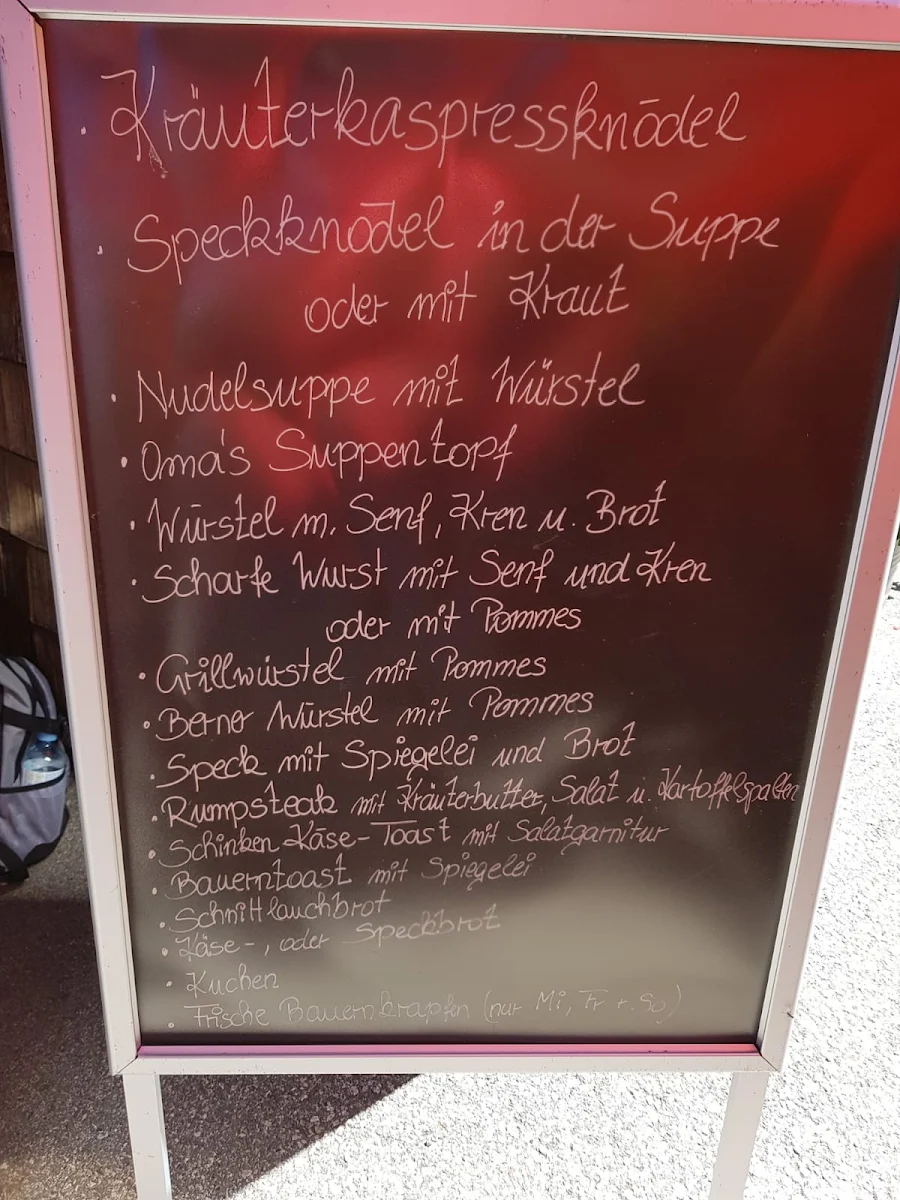 · Kräuterkaspressknödel
· Speckknödel in der Suppe
oder mit Kraut
· Nudelsuppe mit Würstel
· Oma's Suppentopf
· Würstel m. Senf, Kren u. Brot
· Scharfe Wurst mit Senf und Kren
oder mit Pommes
· Grillwürstel mit Pommes
· Berner Würstel mit Pommes
· Speck mit Spiegelei und Brot
· Rumpsteak mit Kräuterbutter, Salat u. Kartoffelspalten
· Schinken-Käse-Toast mit Salatgarnitur
· Bauerntoast mit Spiegelei
· Schnittlauchbrot
· Käse-, oder Speckbrot
· Kuchen
· Frische Bauernkrapfen (nur Mi, Fr + So)